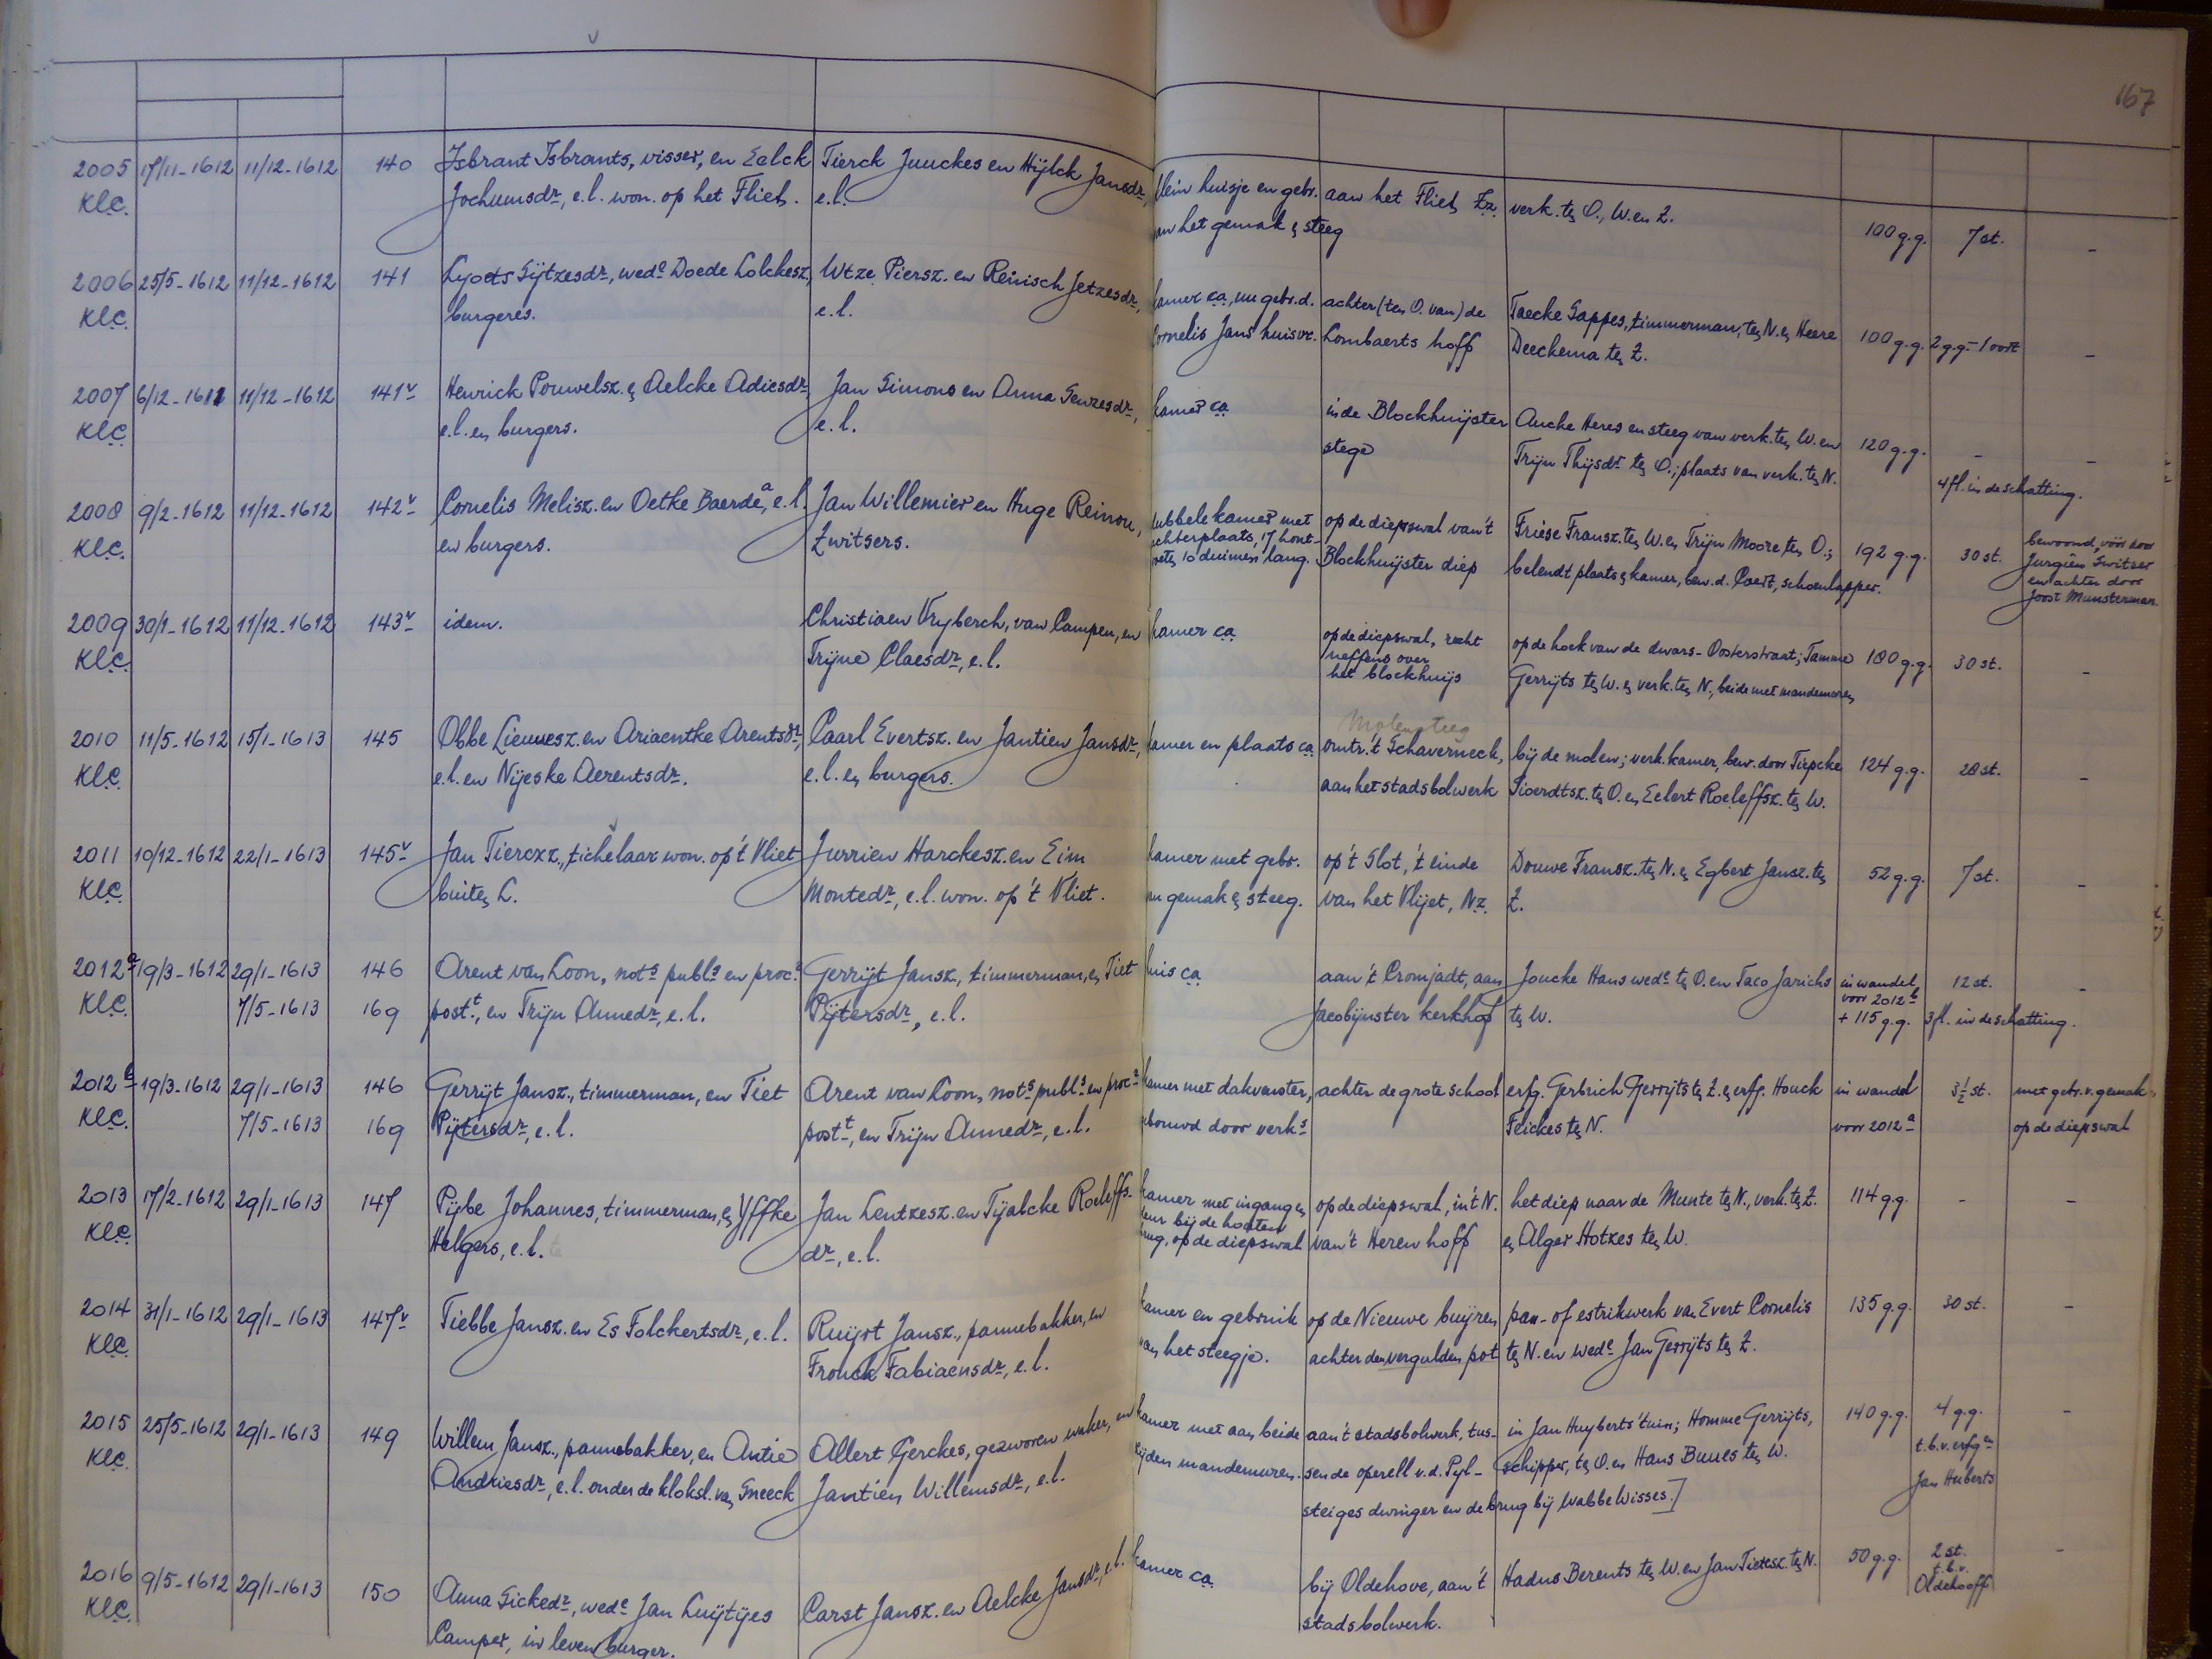 167
2005 17/11-1612 11/12-1612 140 Isbrant Isbrants, visser, en Eelck Tierck Juuckes en Hijlck Jansdr, klein huisje en gebr. aan het Fliet, Zz. verk. ten O., W. en Z. 100 g.g. 7 st. -
KlC. Jochumsdr, e.l. won. op het Fliet. e.l. van het gemak & steeg
2006 25/5-1612 11/12-1612 141 Lyoets Sijtzesdr, wede Doede Lolckesz, Wtze Piersz. en Reinisch Jetzesdr, kamer ca, nu gebr. d. achter (ten O. van) de Taecke Sappes, timmerman, ten N. en Heere 100 g.g. 2 g.g. - 1 oort -
KlC. burgeres. e.l. Cornelis Jans huisvr. Lombaerts hoff Deeckema ten Z.
2007 6/12-1612 11/12-1612 141v Henrick Pouwelsz. & Aelcke Adiesdr, Jan Simons en Anna Sewzesdr, kamer ca in de Blockhuijster Aucke Heres en steeg van verk. ten W. en 120 g.g. - -
KlC. e.l. en burgers. e.l. stege Trijn Thijsdr ten O.; plaats van verk. ten N.
4 fl. in de schatting.
2008 9/2-1612 11/12-1612 142v Cornelis Melisz. en Oetke Baerda, e.l. Jan Willemier en Huge Reinou, dubbele kamer met op de diepswal van 't Friese Fransz. ten W. en Trijn Moore ten O.; 192 g.g. 30 st. bewoond, vóór door
KlC. en burgers. Zwitsers. achterplaats, 17 hout- Blockhuijster diep belendt plaats & kamer, bew. d. Coert, schoenlapper. Jurgien Switser
voets 10 duimen lang. en achter door
Joost Munsterman.
2009 30/1-1612 11/12-1612 143v idem. Christiaen Vryberch, van Campen, en kamer ca op de diepswal, recht op de hoek van de dwars-Oosterstraat; Tamme 180 g.g. 30 st. -
KlC. Trijne Claesdr, e.l. neffens over Gerrijts ten W. en verk. ten N., beide met mandemuren
het blockhuijs
Molensteeg
2010 11/5-1612 15/1-1613 145 Obbe Lieuwesz. en Ariaentke Arentsdr, Caarl Evertsz. en Jantien Jansdr, kamer en plaats ca omtr. 't Schaverneck, bij de molen; verk. kamer, bew. door Tiepcke 124 g.g. 28 st. -
KlC. e.l. en Nijeske Aerentsdr. e.l. en burgers. aan het stadsbolwerk Sioerdtsz. ten O. en Eelert Roeleffsz. ten W.
2011 10/12-1612 22/1-1613 145v Jan Tierczz., tichelaar won. op 't Vliet Jurrien Harckesz. en Eim kamer met gebr. op 't Slot, 't einde Douwe Fransz. ten N. en Egbert Jansz. ten 52 g.g. 7 st. -
KlC buiten L. Montedr, e.l. won. op 't Vliet. van gemak & steeg. van het Vlijet, Nz. Z.
2012a 19/3-1612 29/1-1613 146 Arent van Loon, nots publs en procr Gerrijt Jansz., timmerman, en Tiet huis ca aan 't Cromjadt, aan Joucke Hans wede ten O. en Taco Jarichs in wandel 12 st. -
KlC. 7/5-1613 169 postt, en Trijn Annedr, e.l. Pijtersdr, e.l. Jacobijnster kerkhof ten W. voor 2012b
+ 115 g.g. 3 fl. in de schatting.
2012b 19/3-1612 29/1-1613 146 Gerrijt Jansz., timmerman, en Tiet Arent van Loon, nots publs en procr kamer met dakvenster, achter de grote school erfg. Gerbrich Gerrijts ten Z. & erfg. Houck in wandel 3½ st. met gebr. v. gemak
KlC. 7/5-1613 169 Pijtersdr, e.l. postt, en Trijn Annedr, e.l. gebouwd door verks Feickes ten N. voor 2012a op de diepswal
2013 17/2-1612 29/1-1613 147 Pijbe Johannes, timmerman, en Yffke Jan Lentzesz. en Tijalcke Roeleffs- kamer met ingang en op de diepswal, in 't N. het diep naar de Munte ten N., verk. ten Z. 114 g.g. - -
KlC. Helgers, e.l. dr, e.l. deur bij de houten van 't Heren hoff en Alger Hotzes ten W.
brug, op de diepswal
2014 31/1-1612 29/1-1613 147v Tiebbe Jansz. en Es Folckertsdr, e.l. Ruijrt Jansz., pannebakker, en kamer en gebruik op de Nieuwe buijren pan- of estrikwerk van Evert Cornelis 135 g.g. 30 st. -
KlC Frouck Fabiaensdr, e.l. van het steegje. achter den vergulden pot ten N. en wede Jan Gerrijts ten Z.
2015 25/5-1612 29/1-1613 149 Willem Jansz., pannebakker, en Antie Allert Gerckes, gezworen waker, en kamer met aan beide aan 't stadsbolwerk, tus- in Jan Huyberts' tuin; Homme Gerrijts, 140 g.g. 4 g.g. -
KlC. Andriesdr, e.l. onder de kloksl. van Sneeck Jantien Willemsdr, e.l. zijden mandemuren. sen de operell v.d. Pyl- schipper, ten O. en Hans Buues ten W. t.b.v. erfgen
steiges dwinger en de brug bij Wabbe Wisses.] Jan Huberts
2016 9/5-1612 29/1-1613 150 Anna Sickedr, wede Jan Luijtjes Carst Jansz. en Aelcke Jansdr, e.l. kamer ca bij Oldehove, aan 't Hadus Berents ten W. en Jan Tietesz. ten N. 50 g.g. 2 st. -
KlC. Camper, in leven burger. stadsbolwerk. t.b.v.
Oldehooff